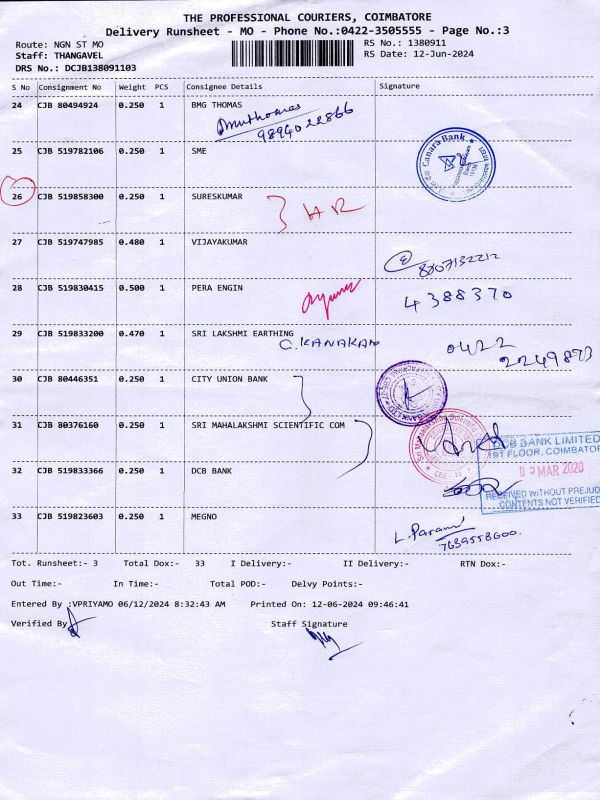 THE PROFESSIONAL COURIERS, COIMBATORE
Delivery Runsheet - MO - Phone No.:0422-3505555 - Page No.:3
Route: NGN ST MO
RS No.: 1380911
Staff: THANGAVEL
RS Date: 12-Jun-2024
DRS No.: DCJB138091103
S No Consignment No Weight PCS Consignee Details Signature
24 CJB 80494924 0.250 1 BMG THOMAS
9894022866
25 CJB 519782106 0.250 1 SME
Canara Bank
26 CJB 519858300 0.250 1 SURESKUMAR
HR
27 CJB 519747985 0.480 1 VIJAYAKUMAR
8707132212
28 CJB 519830415 0.500 1 PERA ENGIN
4388370
29 CJB 519833200 0.470 1 SRI LAKSHMI EARTHING
C. KANAKAN
0422
2249873
30 CJB 80446351 0.250 1 CITY UNION BANK
31 CJB 80376160 0.250 1 SRI MAHALAKSHMI SCIENTIFIC COM
DCB BANK LIMITED
1ST FLOOR, COIMBATOR
MAR 2020
32 CJB 519833366 0.250 1 DCB BANK
RECEIVED WITHOUT PREJUD
CONTENTS NOT VERIFIED
33 CJB 519823603 0.250 1 MEGNO
7639558600.
Tot. Runsheet:- 3 Total Dox:- 33 I Delivery:- II Delivery:- RTN Dox:-
Out Time:- In Time:- Total POD:- Delvy Points:-
Entered By :VPRIYAMO 06/12/2024 8:32:43 AM Printed On: 12-06-2024 09:46:41
Verified By
Staff Signature